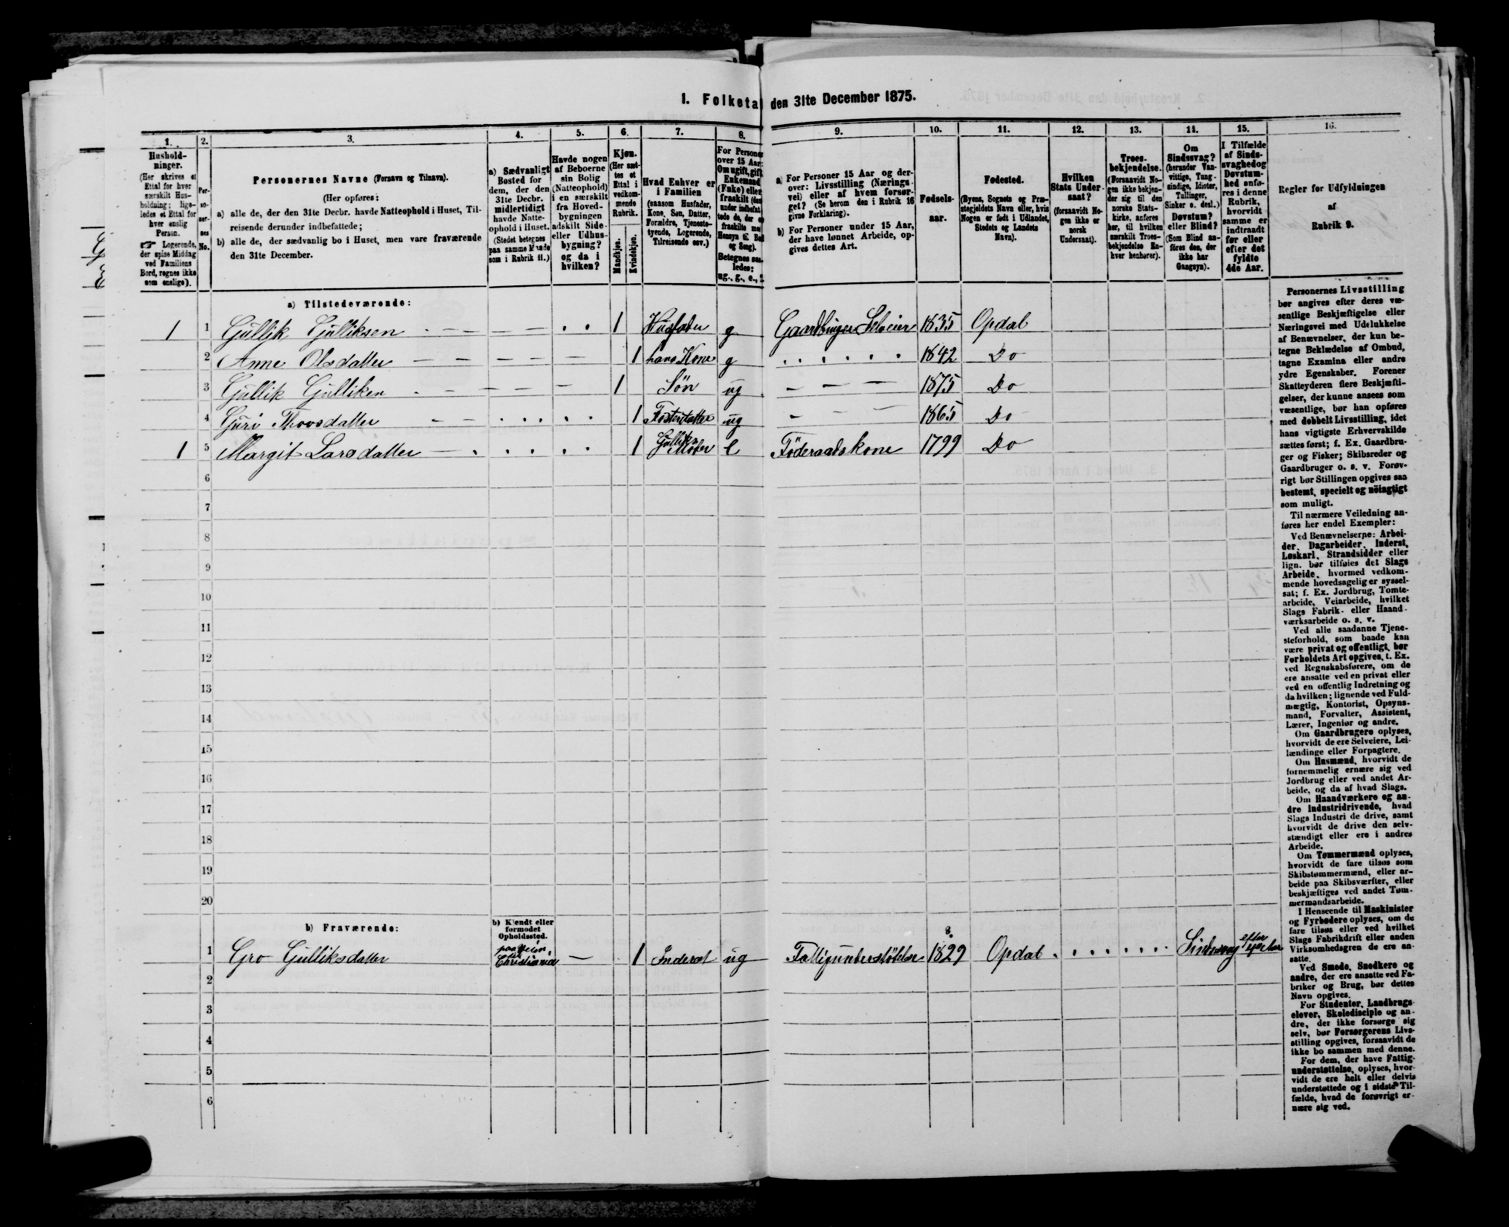 1. Folketa den 31te December 1875.
1. 2. 3. 4. 5. 6. 7. 8. 9. 10. 11. 12. 13. 14. 15. 16.
Hushold-
ninger.
(Her skrives et
Ettal for hver
særskilt Hus-
holdning; lige-
ledes et Ettal for
hver enslig
Person.
☞ Logerende,
der spise Middag
ved Familiens
Bord, regnes ikke
som enslige).
Per-
so-
ner-
nes
No.
Personernes Navne (Fornavn og Tilnavn).
(Her opføres:
a) alle de, der den 31te Decbr. havde Natteophold i Huset, Til-
reisende derunder indbefattede;
b) alle de, der sædvanlig bo i Huset, men vare fraværende
den 31te December.
a) Sædvanligt
Bosted for
dem, der den
31te Decbr.
midlertidigt
havde Natte-
ophold i Huset.
(Stedet betegnes
paa samme Maade
som i Rubrik 11.)
Havde nogen
af Beboerne
sin Bolig
(Natteophold)
i en særskilt
fra Hoved-
bygningen
adskilt Side-
eller Udhus-
bygning?
og da i
hvilken?
Kjøn.
(Her sæt-
tes et
Ettal i
vedkom-
mende
Rubrik.
Mandkjøn.
Kvindekjøn.
Hvad Enhver er
i Familien
(saasom Husfader,
Kone, Søn, Datter,
Forældre, Tjeneste-
tyende, Logerende,
Tilreisende osv.)
For Persone
over 15 Aar:
Om ugift, gift
Enkemand
(Enke) elle
fraskilt (der
under indbefat-
tede de, der e
fraskilte me
Hensyn til Bo
og Seng).
Betegnes saa-
ledes:
ug., g., e.,
a) For Personer 15 Aar og der-
over: Livsstilling (Nærings-
vei) eller af hvem forsør-
get? (Se herom den i Rubrik 16
givne Forklaring).
b) For Personer under 15 Aar,
der have lønnet Arbeide, op-
gives dettes Art.
Fødsels-
aar.
Fødested.
(Byens, Sognets og Præ-
stegjeldets Navn eller, hvis
Nogen er født i Udlandet,
Stedets og Landets
Navn).
Hvilken
Stats Under-
saat?
(forsaavidt No-
gen ikke er
norsk
Undersaat).
Troes-
bekjendelse.
(Forsaavidt No-
gen ikke bekjen-
der sig til den
norske Stats-
kirke, anføres
her, til hvilken
særskilt Troes-
bekjendelse En-
hver henhører).
Om
Sindssvag?
(herunder Van-
vittige, Tung-
sindige, Idioter,
Tullinger,
Sinker o. desl.)
Døvstum?
eller Blind?
(Som Blind an-
føres den, der
ikke har
Gangsyn).
I Tilfælde
af Sinds-
svaghed og
Døvstum-
hed anfø-
res i denne
Rubrik,
hvorvidt
samme er
indtraadt
før eller
efter det
fyldte
4de Aar.
Regler for Udfyldningen
af
Rubrik 9.
a) Tilstedeværende:
1 1 Gullik Gulliksen 1 Husfader g Gaardbruger Seleier 1835 Opdal
2 Anne Olsdatter 1 hans Kone g 1842 Do
3 Gullik Gulliken 1 Søn ug 1875 Do
4 Guri Thovsdatter 1 Fosterdatter ug 1865 Do
1 5 Margit Larsdatter 1 Gulliken Moder e Föderaadskone 1799 Do
6
7
8
9
10
11
12
13
14
15
16
17
18
19
20
b) Fraværende:
b) Kjendt eller
formodet
Opholdssted.
1 Gro Gulliksdatter paa Veien til Christiania 1 Inderst ug Fattigunderstöttelse 1829 Opdal Sindssvag efter
2
3
4
5
6
Personernes Livsstilling
bør angives efter deres væ-
sentlige Beskjæftigelse eller
Næringsvei med Udelukkelse
af Benævnelser, der kun be-
tegne Beklædelse af Ombud,
tagne Examina eller andre
ydre Egenskaber. Forener
Skatteyderen flere Beskjæfti-
gelser, der kunne ansees som
væsentlige, bør han opføres
med dobbelt Livsstilling, idet
hans vigtigste Erhvervskilde
sættes først; f. Ex. Gaardbru-
ger og Fisker; Skibsreder og
Gaardbruger o. s. v. Forøv-
rigt bør Stillingen opgives saa
bestemt, specielt og nöiagtigt
som muligt.
Til nærmere Veiledning an-
føres her endel Exempler:
Ved Benævnelserne: Arbei-
der, Dagarbeider, Inderst,
Løskarl, Strandsidder eller
lign. bør tilføies det Slags
Arbeide, hvormed vedkom-
mende hovedsagelig er syssel-
sat; f. Ex. Jordbrug, Tomte-
arbeide, Veiarbeide, hvilket
Slags Fabrik- eller Haand-
værksarbeide o. s. v.
Ved alle saadanne Tjene-
steforhold, som baade kan
være privat og offentligt, bør
Forholdets Art opgives, t. Ex.
ved Regnskabsførere, om de
ere ansatte ved en privat eller
ved en offentlig Indretning og
da hvilken; lignende ved Fuld-
mægtig, Kontorist, Opsyns-
mand, Forvalter, Assistent,
Lærer, Ingeniør og andre.
Om Gaardbrugere oplyses,
hvorvidt de ere Selveiere, Lei-
lændinge eller Forpagtere.
Om Husmænd, hvorvidt de
fornemmelig ernære sig ved
Jordbrug eller ved andet Ar-
beide, og da af hvad Slags.
Om Haandværkere og an-
dre Industridrivende, hvad
Slags Industri de drive, samt
hvorvidt de drive den selv-
stændigt eller ere i andres
Arbeide.
Om Tømmermænd oplyses,
hvorvidt de fare tilsøs som
Skibstømmermænd, eller ar-
beide paa Skibsværfter, eller
beskjæftiges ved andet Tøm-
mermandsarbeide.
I Henseende til Maskinister
og Fyrbødere oplyses, om de
fare tilsøs eller ved hvilket
Slags Fabrikdrift eller anden
Virksomhedsgren de ere an-
satte.
Ved Smede, Snedkere og
andre, der ere ansatte ved Fa-
briker og Brug, bør dettes
Navn opgives.
For Studenter, Landbrugs-
elever, Skoledisciple og an-
dre, der ikke forsørge sig
selv, bør Forsørgerens Livs-
stilling opgives, forsaavidt de
ikke bo sammen med denne.
For dem, der have Fattig-
understøttelse, oplyses, hvor-
vidt de ere helt eller delvis
understøttede og i sidste Til-
fælde, hvad de forøvrigt er-
nære sig ved.